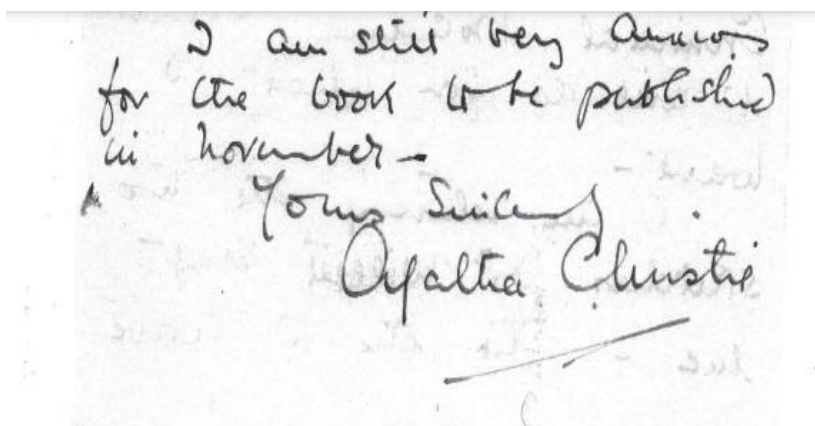 I am still very anxious
for the book to be published
in November –
Yours Sincerely
Agatha Christie